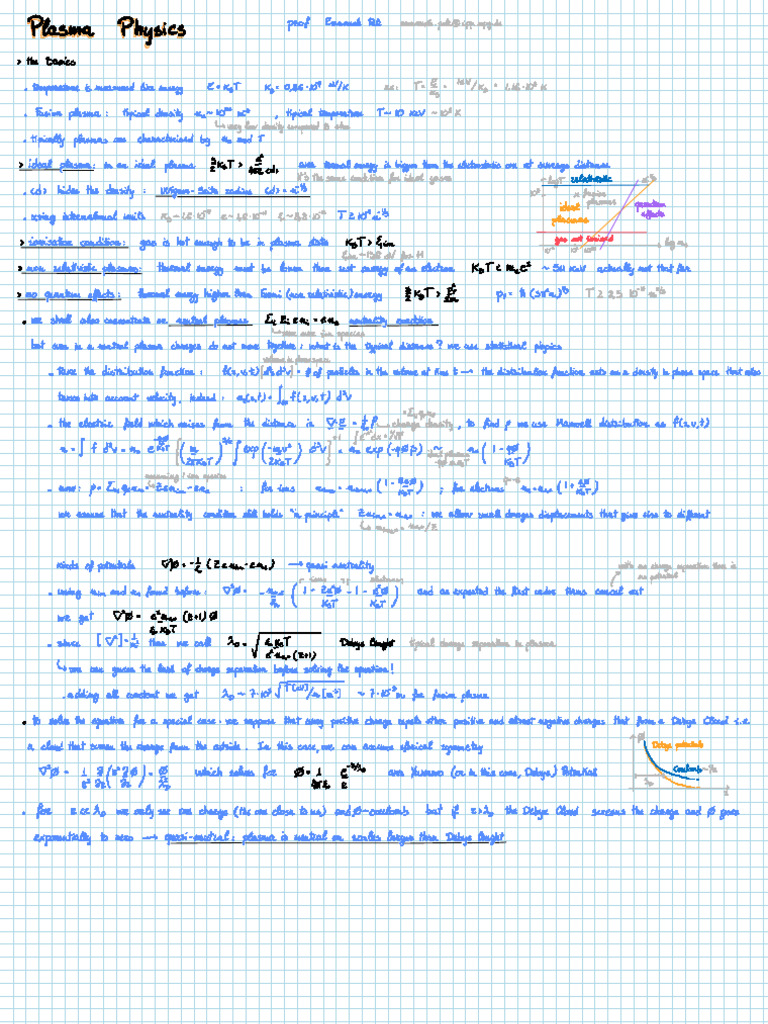 Plasma Physics
prof Emanuel
> the basics
. temperature is measured like energy E = K_B T K_B = 0,86·10⁻⁴ eV/K ex: T = E/K_B = 1,16·10⁴ K
. Fusion plasma: typical density n ~ 10²⁰ m⁻³, typical temperature T ~ 10 keV ~ 10⁸ K
very low density compared to
. typically plasmas are characterised by n and T
> ideal plasma: in an ideal plasma 3/2 K_B T > e²/4πε₀<d> ave thermal energy is bigger than the electrostatic one at average distances
it's the same condition for ideal gases
. <d> hides the density: Wigner-Seitz radius <d> = n^-1/3
. using international units T ≥
> ionisation condition: gas is hot enough to be in plasma state K_B T > E_ion
E_ion ~ 13,6 eV for H
> non relativistic plasmas: thermal energy must be lower than rest energy of an electron K_B T < m_e c² ~ 511 KeV actually not that far
> no quantum effects: thermal energy higher than Fermi (non relativistic) energy 3/2 K_B T > p_F²/2m p_F = ħ (3π²n)^1/3
relativistic
ideal plasmas
fusion plasmas
quantum effects
gas not ionised
log n
. we shall also concentrate on neutral plasmas Σ_i Z_i e n_i = e n_e neutrality condition
sum over ion species
but even in a neutral plasma charges do not move together: what is the typical distance? we use statistical physics
. take the distribution function: f(x,v,t) [d³x d³v] = # of particles in the volume at time t → the distribution function acts as a density in phase space that also
volume in phase space
takes into account velocity, indeed: n(x,t) = ∫ f(x,v,t) d³v
. the electric field which arises from the distance is ∇·E = 1/ε₀ ρ, to find ρ we use Maxwell distribution as f(x,v,t)
charge density
n = ∫ f d³v = n₀ e^(-qΦ/K_BT) [(m/2πK_BT)^3/2 ∫ exp(-mv²/2K_BT) d³v] = n₀ exp(-qΦβ) ~ n₀ (1 - qΦ/K_BT)
. now: ρ = Σ_i q_i n_i = Z e n_ion - e n_e ; for ions n_ion = n_ion0 (1 - ZeΦ/K_BT) ; for electrons n_e = n_e0 (1 + eΦ/K_BT)
assuming 1 ion species
we assume that the neutrality condition still holds "in principle" Z n_ion0 = n_e0 : we allow small charges displacements that give rise to different
n_ion0 = n_e0/Z
kinds of potentials ∇²Φ = -1/ε₀ (Z e n_ion - e n_e) → quasi neutrality
. using n_ion and n_e found before: ∇²Φ = -e n_e0/ε₀ (1 - ZeΦ/K_BT - 1 - eΦ/K_BT) and as expected the first order terms cancel out
ions electrons
with no charge separation there is no potential
we get ∇²Φ = e² n_e0/ε₀K_BT (Z+1) Φ
. since [∇²] = 1/m² then we call λ_D = √(ε₀K_BT / e²n_e0(Z+1)) Debye lenght typical charge separation in plasma
we can guess the limit of charge separation before solving the equation!
. adding all constant we get λ_D ~ 7·10³ √(T[eV]/n[m⁻³]) m for fusion plasma
. to solve the equation for a special case: we suppose that every positive charge repels other positive and attract negative charges that form a Debye Cloud i.e.
a cloud that screen the charge from the outside. In this case, we can assume spherical symmetry
∇²Φ = 1/r² ∂/∂r (r² ∂Φ/∂r) = Φ/λ_D² which solves for Φ = 1/4πε₀ e^(-r/λ_D)/r Yukawa (or in this case, Debye) Potential
Debye potential
Coulomb
. for r << λ_D we only see one charge (the one close to us) and Φ~Coulomb but if r > λ_D the Debye Cloud screens the charge and Φ goes
exponentially to zero → quasi-neutral: plasma is neutral on scales larger than Debye lenght